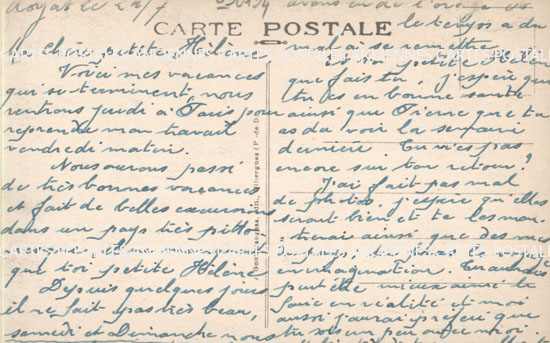 Royat le 24/7
CARTE POSTALE
Ma chère petite Hélène
Voici mes vacances
qui se terminent, nous
rentrons jeudi à Paris pour
reprendre mon travail
vendredi matin.
Nous aurons passé
de très bonnes vacances
et fait de belles excursions
dans un pays très pitto
que toi petite Hélène
Depuis quelques jours
il ne fait pas très beau,
samedi et Dimanche nous
avons eu de l'orage
le temps a du
mal à se remettre
petite Hélène
que fais tu, j'espère que
tu es en bonne santé
ainsi que Pierre que tu
as du voir la semaine
dernière. Tu n'es pas
encore sur ton retour?
J'ai fait pas mal
de photos, j'espère qu'elles
seront bien et te les mon-
trerai ainsi que des vues
en imagination.
peut être mieux aimé le
faire en réalité et moi
aussi j'aurai préféré que
tu sois un peu avec moi.